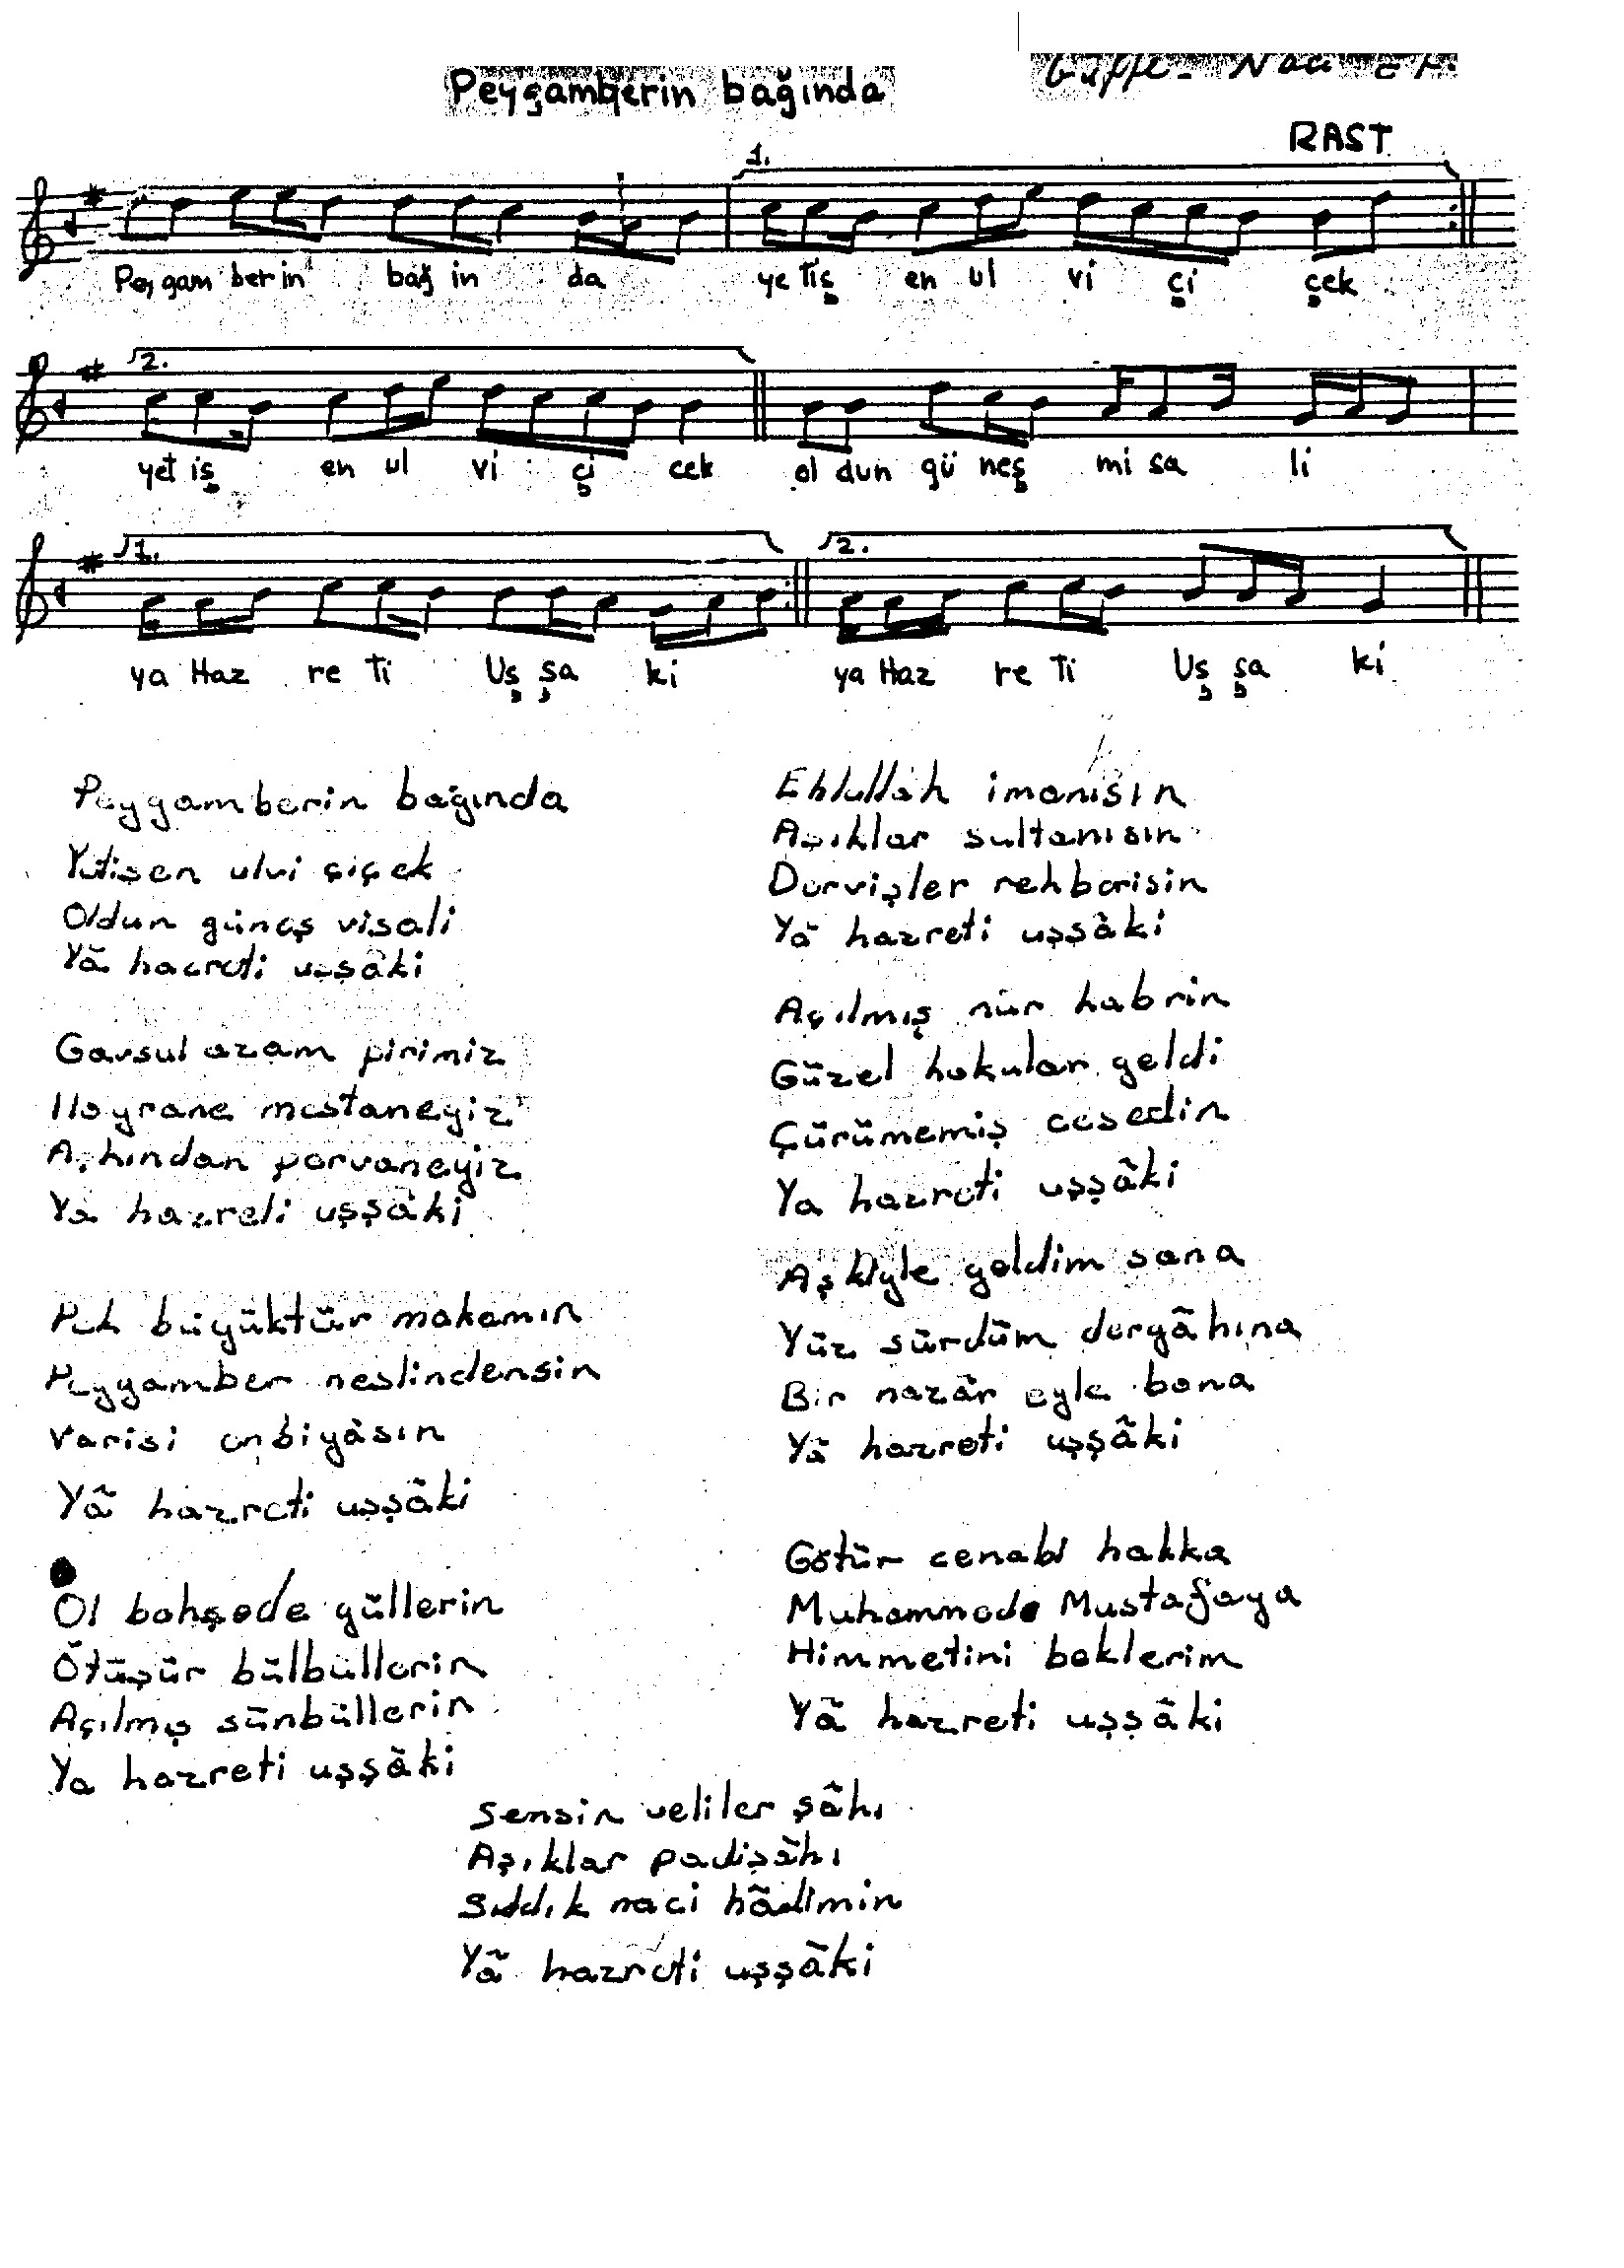 Peygamberin bağında
Güfte- Naci Ef.
RAST
1.
Pey gam ber in bağ in da ye tiş en ul vi çi çek
2.
yet iş en ul vi çi cek ol dun gü neş mi sa li
1. 2.
ya Haz re ti Uş şa ki ya Haz re ti Uş şa ki
Peygamberin bağında
Yetişen ulvi çiçek
Oldun güneş visali
Yâ hazreti uşşâki
Gavsul azam pirimiz
Hayrane mestaneyiz
Aşkından pervaneyiz
Ya hazreti uşşâki
Pek büyüktür makamın
Peygamber neslindensin
Varisi enbiyâsın
Yâ hazreti uşşâki
Ol bahşede güllerin
Ötüşür bülbüllerin
Açılmış sünbüllerin
Ya hazreti uşşâki
Ehlullah imanısın
Aşıklar sultanısın
Dervişler rehberisin
Yâ hazreti uşşâki
Açılmış nûr kabrin
Güzel kokular geldi
Çürümemiş cesedin
Ya hazreti uşşâki
Aşkıyle geldim sana
Yüz sürdüm dergâhına
Bir nazâr eyle bana
Yâ hazreti uşşâki
Götür cenabı hakka
Muhammede Mustafaya
Himmetini beklerim
Yâ hazreti uşşâki
Sensin veliler şâhı
Aşıklar padişâhı
Sıddık naci hâdimin
Yâ hazreti uşşâki